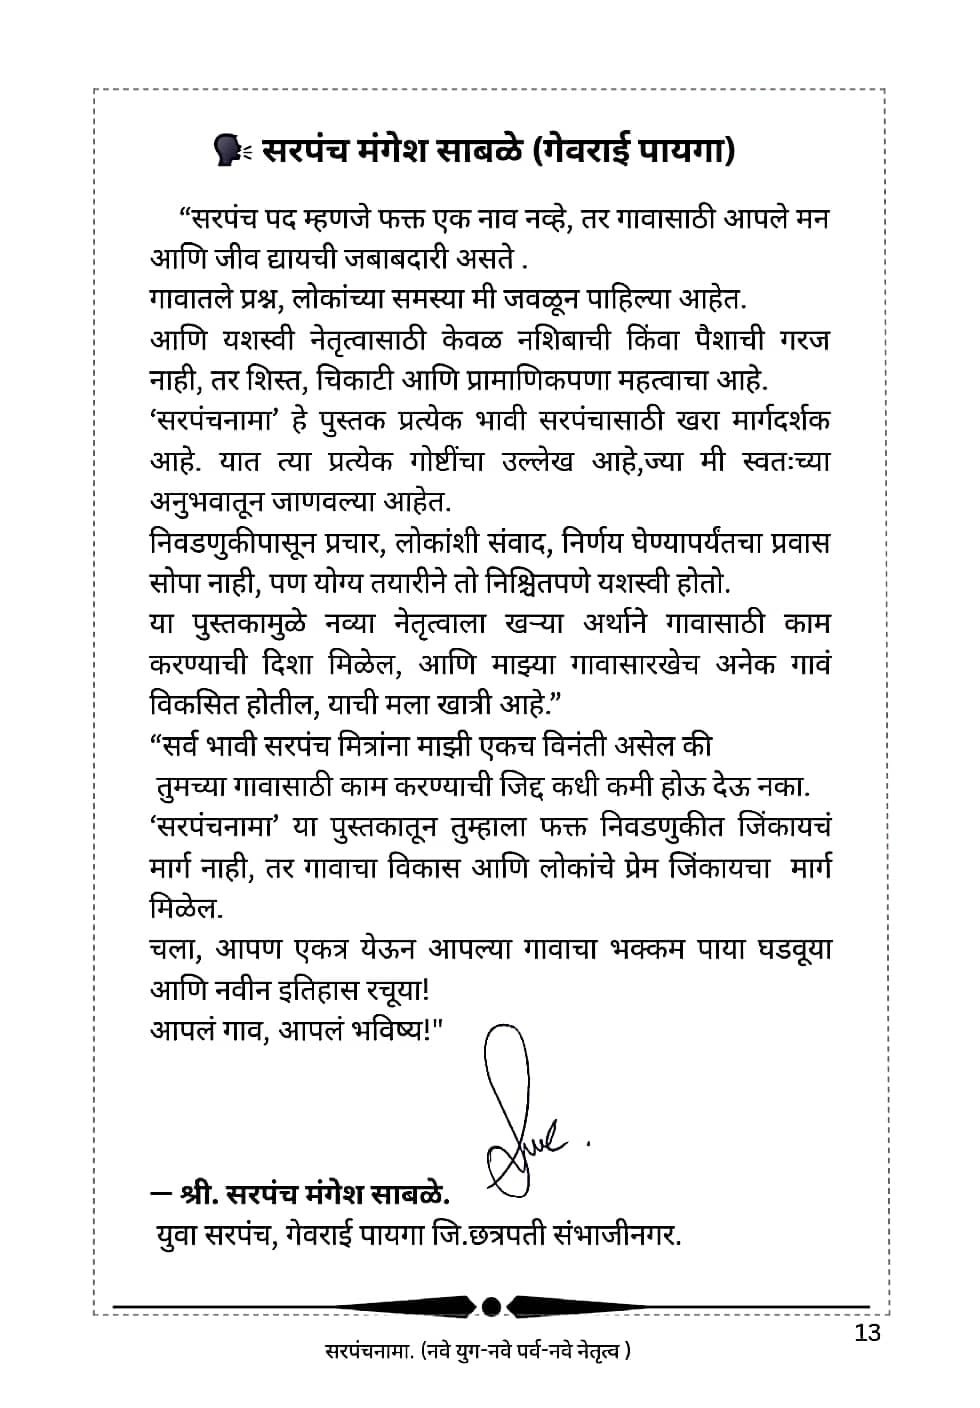 सरपंच मंगेश साबळे (गेवराई पायगा)
“सरपंच पद म्हणजे फक्त एक नाव नव्हे, तर गावासाठी आपले मन
आणि जीव द्यायची जबाबदारी असते .
गावातले प्रश्न, लोकांच्या समस्या मी जवळून पाहिल्या आहेत.
आणि यशस्वी नेतृत्वासाठी केवळ नशिबाची किंवा पैशाची गरज
नाही, तर शिस्त, चिकाटी आणि प्रामाणिकपणा महत्वाचा आहे.
‘सरपंचनामा’ हे पुस्तक प्रत्येक भावी सरपंचासाठी खरा मार्गदर्शक
आहे. यात त्या प्रत्येक गोष्टींचा उल्लेख आहे,ज्या मी स्वतःच्या
अनुभवातून जाणवल्या आहेत.
निवडणुकीपासून प्रचार, लोकांशी संवाद, निर्णय घेण्यापर्यंतचा प्रवास
सोपा नाही, पण योग्य तयारीने तो निश्चितपणे यशस्वी होतो.
या पुस्तकामुळे नव्या नेतृत्वाला खऱ्या अर्थाने गावासाठी काम
करण्याची दिशा मिळेल, आणि माझ्या गावासारखेच अनेक गावं
विकसित होतील, याची मला खात्री आहे.”
“सर्व भावी सरपंच मित्रांना माझी एकच विनंती असेल की
तुमच्या गावासाठी काम करण्याची जिद्द कधी कमी होऊ देऊ नका.
‘सरपंचनामा’ या पुस्तकातून तुम्हाला फक्त निवडणुकीत जिंकायचं
मार्ग नाही, तर गावाचा विकास आणि लोकांचे प्रेम जिंकायचा मार्ग
मिळेल.
चला, आपण एकत्र येऊन आपल्या गावाचा भक्कम पाया घडवूया
आणि नवीन इतिहास रचूया!
आपलं गाव, आपलं भविष्य!"
– श्री. सरपंच मंगेश साबळे.
युवा सरपंच, गेवराई पायगा जि.छत्रपती संभाजीनगर.
13
सरपंचनामा. (नवे युग-नवे पर्व-नवे नेतृत्व )